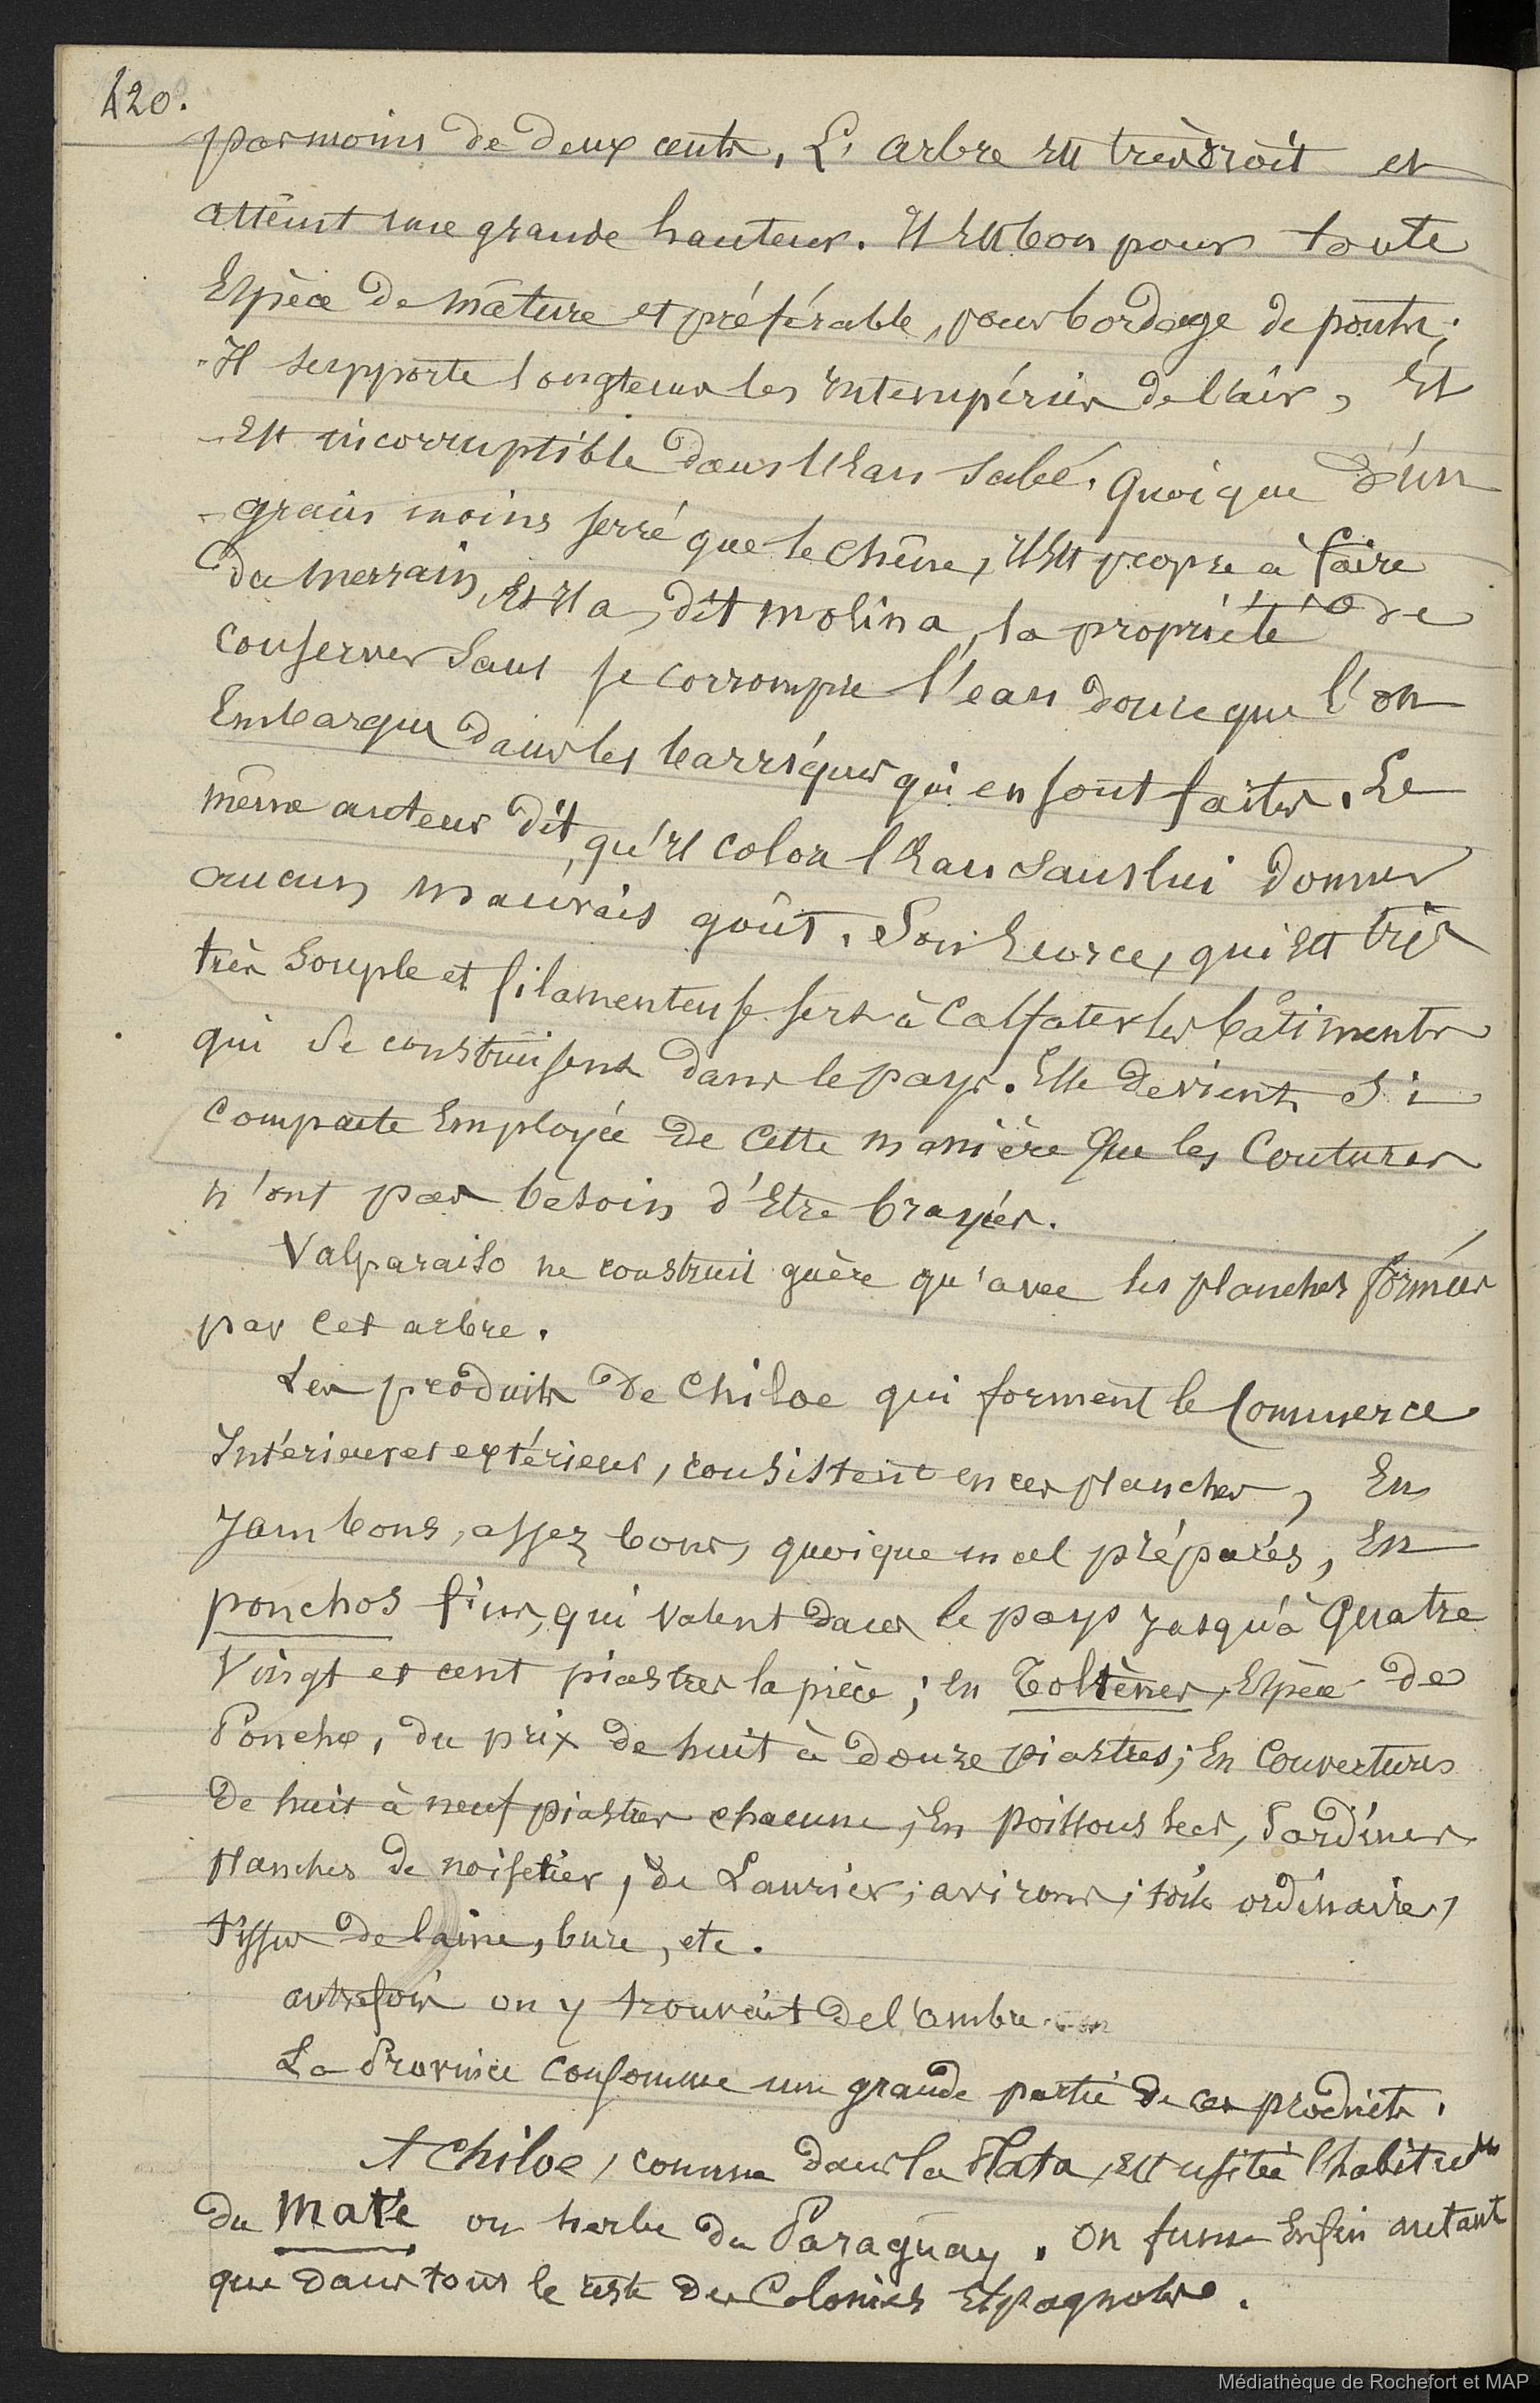 420.
pas moins de deux cents, L'arbre est très droit et
atteint une grande hauteur. Il est bon pour toute
Espèce de mâture et préférable, pour bordage de ponts;
Il supporte longtems les intempéries de l'air, Et
Est incorruptible dans l'Eau salée. Quoique d'un
grain moins serré que le chêne, il Est propre à faire
du merrain, Et il a, dit molina, la propriété de
conserver sans se corrompre l'eau douce que l'on
Embarque dans les barriques qui en sont faites. Le
même auteur dit, qu'il colore l'Eau sans lui donner
aucun mauvais goût. Son Ecorce, qui Est très
très souple et filamenteuse sert à calfater les bâtiments
qui se construisent dans le pays. Elle devient si
compacte Employée de cette manière Que les Coutures
n'ont pas besoin d'Etre brayées.
Valparaiso ne construit guère qu'avec les planches formées
par cet arbre.
Les produits de Chiloe qui forment le Commerce
Intérieur et extérieur, consistent en ces planches, En
Jambons, assez bons, quoique mal préparés, En
ponchos fins, qui valent dans le pays jusqu'à Quatre
Vingt et cent piastres la pièce; en Toltènes, Espèce de
Poncho, du prix de huit à douze piastres; En Couvertures
de huit à neuf piastres chacune; En poissons secs, Sardines
planches de noisetier, de Laurier; avirons; toile ordinaire,
tissus de laine, bure, etc.
autrefois on y trouvait de l'ambre
La Province consomme une grande partie de ces produits.
A Chiloe, comme dans la Plata, Est usitée l'habitude
du Maté ou herbe du Paraguay. On fume Enfin autant
que dans tout le reste des Colonies Espagnoles.
Médiathèque de Rochefort et MAP